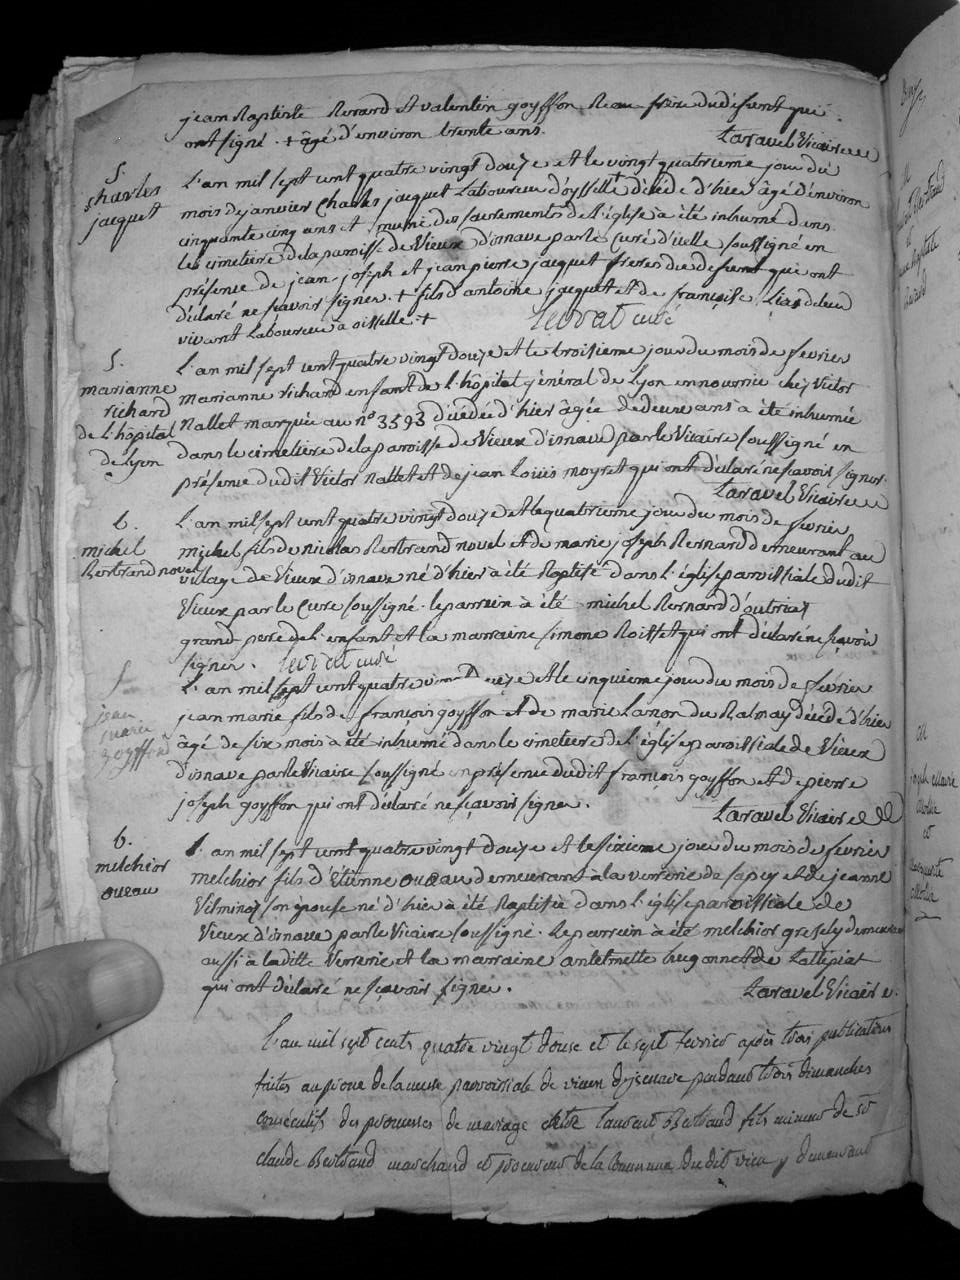 jean Baptiste Berard et valentin goyffon Beau frère du défunt qui
ont signé. + âgé d'environ trente ans. Laravel Vicaire
S.
charles
jacquet
L'an mil sept cent quatre vingt douze et le vingt quatrieme jour du
mois de janvier Charles jacquet Laboureur d'oysselle décédé d'hier âgé d'environ
cinquante cinq ans et muni des sacrements de l'église à été inhumé dans
le cimetière de la paroisse de Vieux d'isnave par le Curé d'icelle soussigné en
présence de jean joseph et jean pierre jacquet frères du defunt qui ont
déclaré ne sçavoir signer. + fils d'antoine jacquet et de françoise
vivant Laboureur a oisselle + curé
S.
marianne
richard
de l'hôpital
de Lyon
L'an mil sept cent quatre vingt douze et le troisieme jour du mois de fevrier
marianne richard enfant de l'hôpital général de Lyon en nourrice chez Victor
Nallet marquée au n° 3593 décédée d'hier âgée de deux ans à été inhumée
dans le cimetiere de la paroisse de Vieux d'isnave par le Vicaire soussigné en
présence dudit Victor Nallet et de jean Louis moyret qui ont déclaré ne sçavoir signer.
Laravel Vicaire
b.
michel
Bertrand novel
L'an mil sept cent quatre vingt douze et le quatrieme jour du mois de fevrier
michel fils de nicolas Bertrand novel et de marie joseph Bernard demeurant au
village de Vieux d'isnave né d'hier à été Baptisé dans l'église paroissiale dudit
Vieux par le Curé soussigné. le parrein à été michel Bernard d'outriaz
grand pere de l'enfant et la marraine simone Roisset qui ont déclaré ne sçavoir
signer. curé
S
jean
marie
goyffon
L'an mil sept cent quatre vingt douze et le cinquieme jour du mois de fevrier
jean marie fils de françois goyffon et de marie Lanon du Balmay décédé d'hier
âgé de six mois à été inhumé dans le cimetiere de l'église paroissiale de Vieux
d'isnave par le Vicaire soussigné en présence dudit françois goyffon et de pierre
joseph goyffon qui ont déclaré ne sçavoir signer.
Laravel Vicaire
b.
melchior
oueau
L'an mil sept cent quatre vingt douze et le sixieme jour du mois de fevrier
melchior fils d'Etienne oueau demeurant à la verrerie de et de jeanne
Vilminot son epouse né d'hier à été Baptisé dans l'église paroissiale de
Vieux d'isnave par le Vicaire soussigné. Le parrein à été melchior gresely demeurant
aussi à la ditte Verrerie et la marraine antelmette hugonnet de Lalleyriat
qui ont déclaré ne sçavoir signer. Laravel Vicaire
L'an mil sept cents quatre vingt douse et le sept fevrier après trois publications
faites au prône de la messe parroissiale de vieux d'isenave pendant trois dimanches
consécutifs des promesses de mariage entre Laurent Bertrand fils mineur de sr
claude Bertrand marchand et procureur de la Commune du dit vieu y demeurant